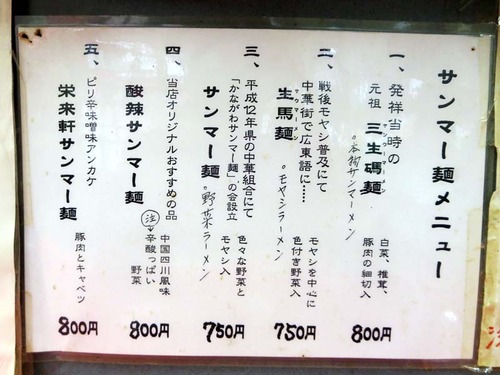 サンマー麺メニュー
一、発祥当時の
元祖 三生碼麺
サンセーマーメン
白菜、椎茸、
豚肉の細切入
800円
二、戦後モヤシ普及にて
中華街で広東語に……
生馬麺
サウマーメン
。モヤシラーメン
モヤシを中心に
色付き野菜入
750円
三、平成12年県の中華組合にて
「かながわサンマー麺」の会設立
サンマー麺
。野菜ラーメン
色々な野菜と
モヤシ入
750円
四、当店オリジナルおすすめの品
酸辣サンマー麺
注
辛酸っぱい
中国四川風味
野菜
800円
五、ピリ辛味噌味アンカケ
栄来軒サンマー麺
豚肉とキャベツ
800円